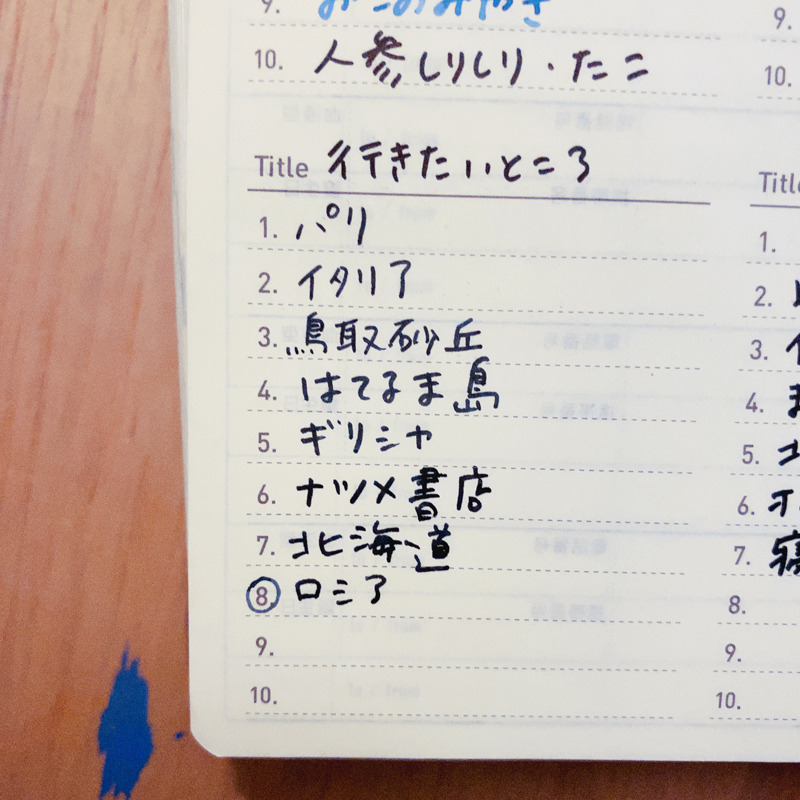 9. おこのみやき
9.
10. 人参しりしり・たこ
10.
Title 行きたいところ
1. パリ
2. イタリア
3. 鳥取砂丘
4. はてるま島
5. ギリシャ
6. ナツメ書店
7. 北海道
8. ロシア
9.
10.
Title
1.
2.
3.
4.
5.
6.
7.
8.
9.
10.